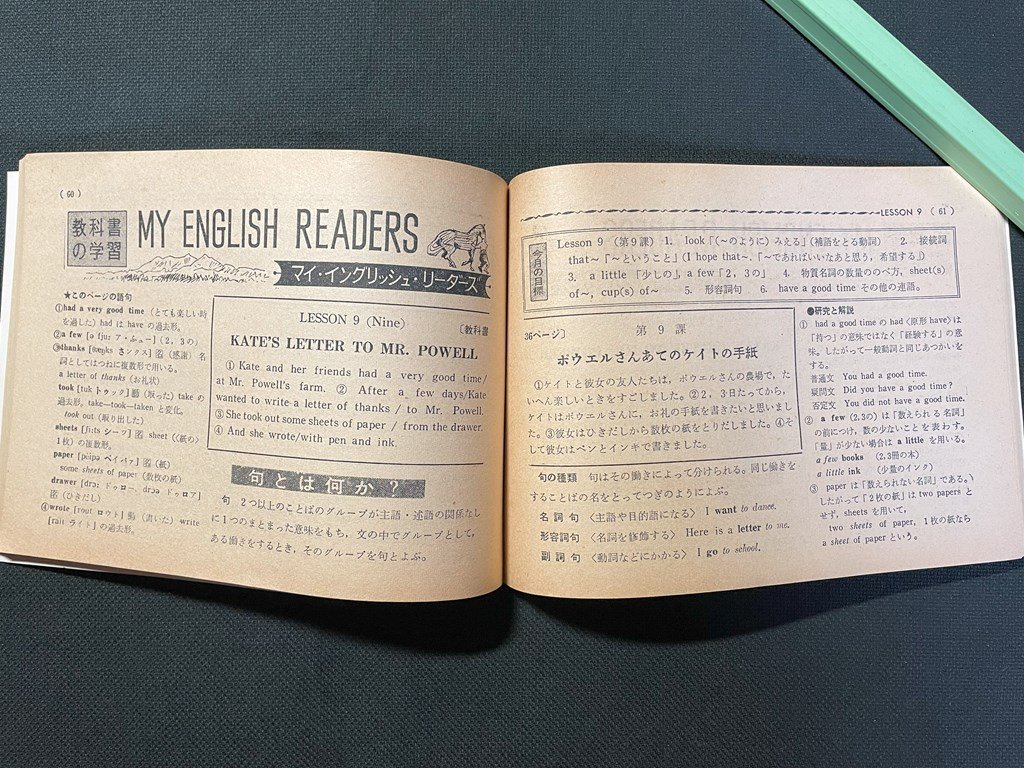 ( 60 )
教科書
の学習
MY ENGLISH READERS
マイ・イングリッシュ・リーダース
★このページの語句
①had a very good time (とても楽しい時
を過した) had は have の過去形。
②a few [ə fjuː ア・ふュー] (2, 3の)
③thanks [θæŋks さンクス] 名 (感謝) 名
詞としてはつねに複数形で用いる。
a letter of thanks (お礼状)
took [tuk トゥック] 動 (取った) take の
過去形, take—took—taken と変化。
took out (取り出した)
sheets [ʃiːts シーツ] 名 sheet (<紙の>
1枚) の複数形。
paper [péipə ペイパァ] 名 (紙)
some sheets of paper (数枚の紙)
drawer [drɔː ドゥロー, drɔ́ə ドゥロア]
名 (ひきだし)
④wrote [rout ロウト] 動 (書いた) write
[rait ライト] の過去形。
LESSON 9 (Nine)
〔教科書
KATE'S LETTER TO MR. POWELL
① Kate and her friends had a very good time/
at Mr. Powell's farm. ② After a few days/Kate
wanted to write a letter of thanks / to Mr. Powell.
③ She took out some sheets of paper / from the drawer.
④ And she wrote/with pen and ink.
句とは何か?
句 2つ以上のことばのグループが主語・述語の関係なし
に1つのまとまった意味をもち, 文の中でグループとして,
ある働きをするとき, そのグループを句とよぶ。
LESSON 9 ( 61 )
今月の目標
Lesson 9 (第9課) 1. look「(〜のように) みえる」(補語をとる動詞) 2. 接続詞
that〜「〜ということ」(I hope that〜.「〜であればいいなあと思う, 希望する」)
3. a little 「少しの」, a few「2, 3の」 4. 物質名詞の数量ののべ方, sheet(s)
of〜, cup(s) of〜 5. 形容詞句 6. have a good time その他の連語。
36ページ〕
第 9 課
ポウエルさんあてのケイトの手紙
①ケイトと彼女の友人たちは, ポウエルさんの農場で, た
いへん楽しいときをすごしました。②2, 3日たってから,
ケイトはポウエルさんに, お礼の手紙を書きたいと思いまし
た。③彼女はひきだしから数枚の紙をとりだしました。④そ
して彼女はペンとインキで書きました。
句の種類 句はその働きによって分けられる。同じ働きを
することばの名をとってつぎのようによぶ。
名 詞 句 〈主語や目的語になる〉 I want to dance.
形容詞句 〈名詞を修飾する〉 Here is a letter to me.
副 詞 句 〈動詞などにかかる〉 I go to school.
●研究と解説
① had a good time の had 〈原形 have〉は
「持つ」の意味ではなく「経験する」の意
味。したがって一般動詞と同じあつかいを
する。
普通文 You had a good time.
疑問文 Did you have a good time?
否定文 You did not have a good time.
② a few (2,3の) は「数えられる名詞」
の前につけ, 数の少ないことを表わす。
「量」が少ない場合は a little を用いる。
a few books (2,3冊の本)
a little ink (少量のインク)
③ paper は「数えられない名詞」である。
したがって「2枚の紙」は two papers と
せず, sheets を用いて,
two sheets of paper, 1枚の紙なら
a sheet of paper という。